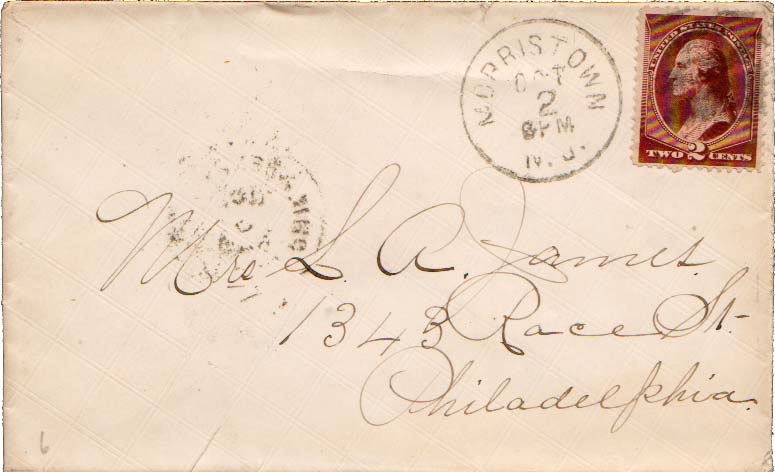 MORRISTOWN
OCT
2
8PM
N. J.
UNITED STATES POSTAGE
TWO 2 CENTS
Mrs L. A. James
1343 Race St.
Philadelphia.
6